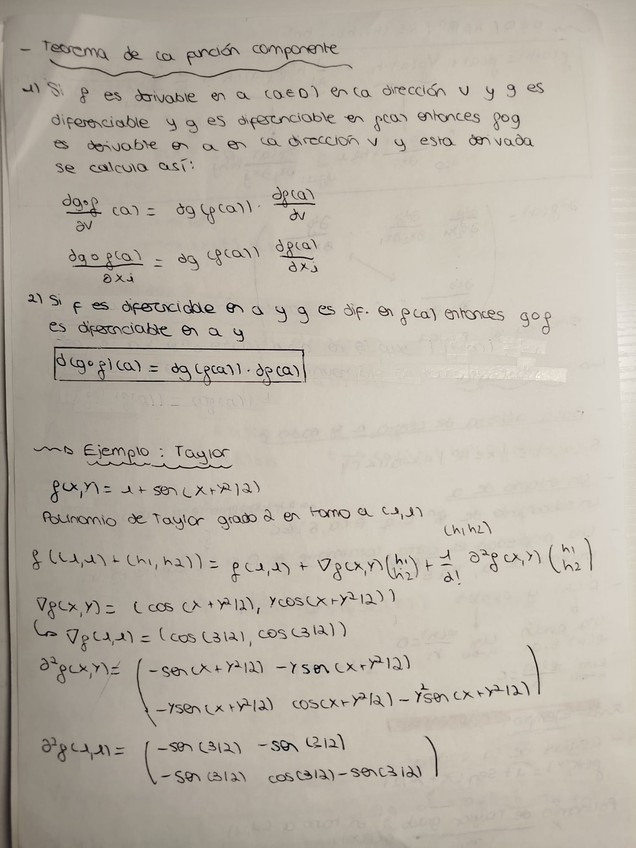 - Teorema de la función componente
1) Si f es derivable en a (a∈D) en la dirección v y g es
diferenciable y g es diferenciable en f(a) entonces fog
es derivable en a en la dirección v y esta derivada
se calcula así:
∂g∘f/∂v (a) = dg(f(a)) · ∂f(a)/∂v
∂g∘f(a)/∂xj = dg(f(a)) ∂f(a)/∂xj
2) Si f es diferenciable en a y g es dif. en f(a) entonces g∘f
es diferenciable en a y
d(g∘f)(a) = dg(f(a)) · df(a)
Ejemplo: Taylor
f(x,y) = 1 + sen(x+y²/2)
Polinomio de Taylor grado 2 en torno a (1,1)
(h1 h2)
f((1,1)+(h1,h2)) = f(1,1) + ∇f(x,y) (h1 h2) + 1/2! ∂²f(x,y) (h1 h2)
∇f(x,y) = (cos(x+y²/2), ycos(x+y²/2))
↳ ∇f(1,1) = (cos(3/2), cos(3/2))
∂²f(x,y) = (-sen(x+y²/2) -ysen(x+y²/2)
-ysen(x+y²/2) cos(x+y²/2) - y²sen(x+y²/2))
∂²f(1,1) = (-sen(3/2) -sen(3/2)
-sen(3/2) cos(3/2)-sen(3/2))